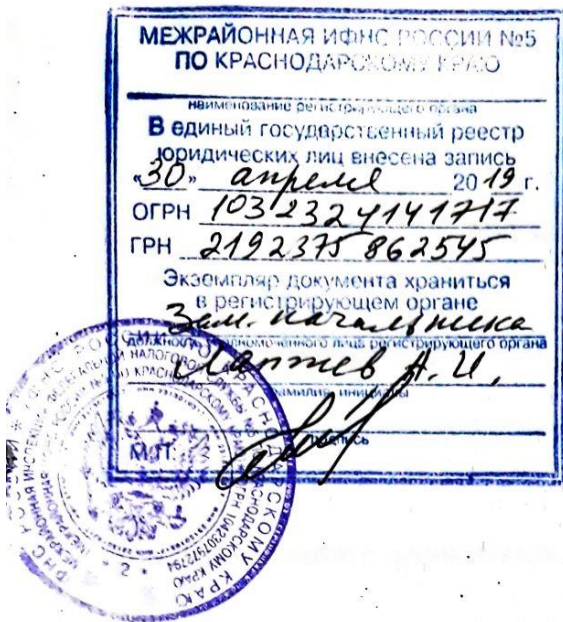 МЕЖРАЙОННАЯ ИФНС РОССИИ №5
ПО КРАСНОДАРСКОМУ КРАЮ
наименование регистрирующего органа
В единый государственный реестр
юридических лиц внесена запись
«30» апреля 2019 г.
ОГРН 1032324141717
ГРН 2192375862545
Экземпляр документа храниться
в регистрирующем органе
Зам. начальника
должность уполномоченного лица регистрирующего органа
Лаптев А. И.
фамилия, инициалы
подпись
М.П.
КРАСНОДАРСКОМУ КРАЮ